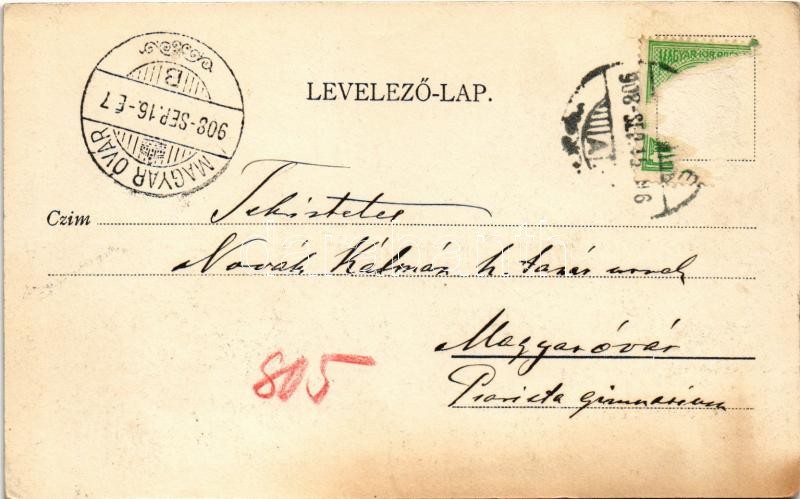 LEVELEZŐ-LAP.
MAGYAR ÓVÁR
908 SEP.16-É7
B
MAGYAR KIR. POSTA
908
Czim
Tekintetes
Novák Kálmán h. tanár urnak
Magyaróvár
Piarista gimnásium
805